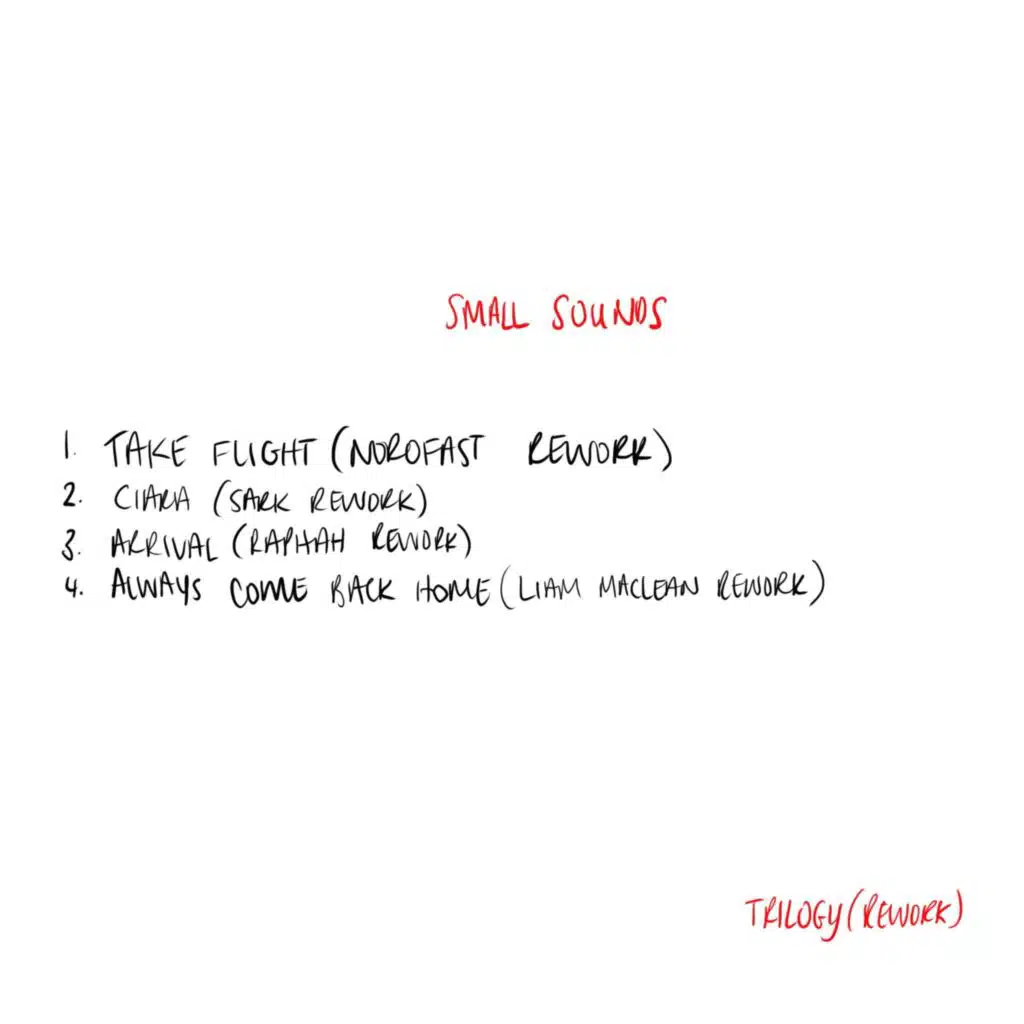 SMALL SOUNDS
1. TAKE FLIGHT (NOROFAST REWORK)
2. CIARA (SARK REWORK)
3. ARRIVAL (RAPHAH REWORK)
4. ALWAYS COME BACK HOME (LIAM MACLEAN REWORK)
TRILOGY (REWORK)